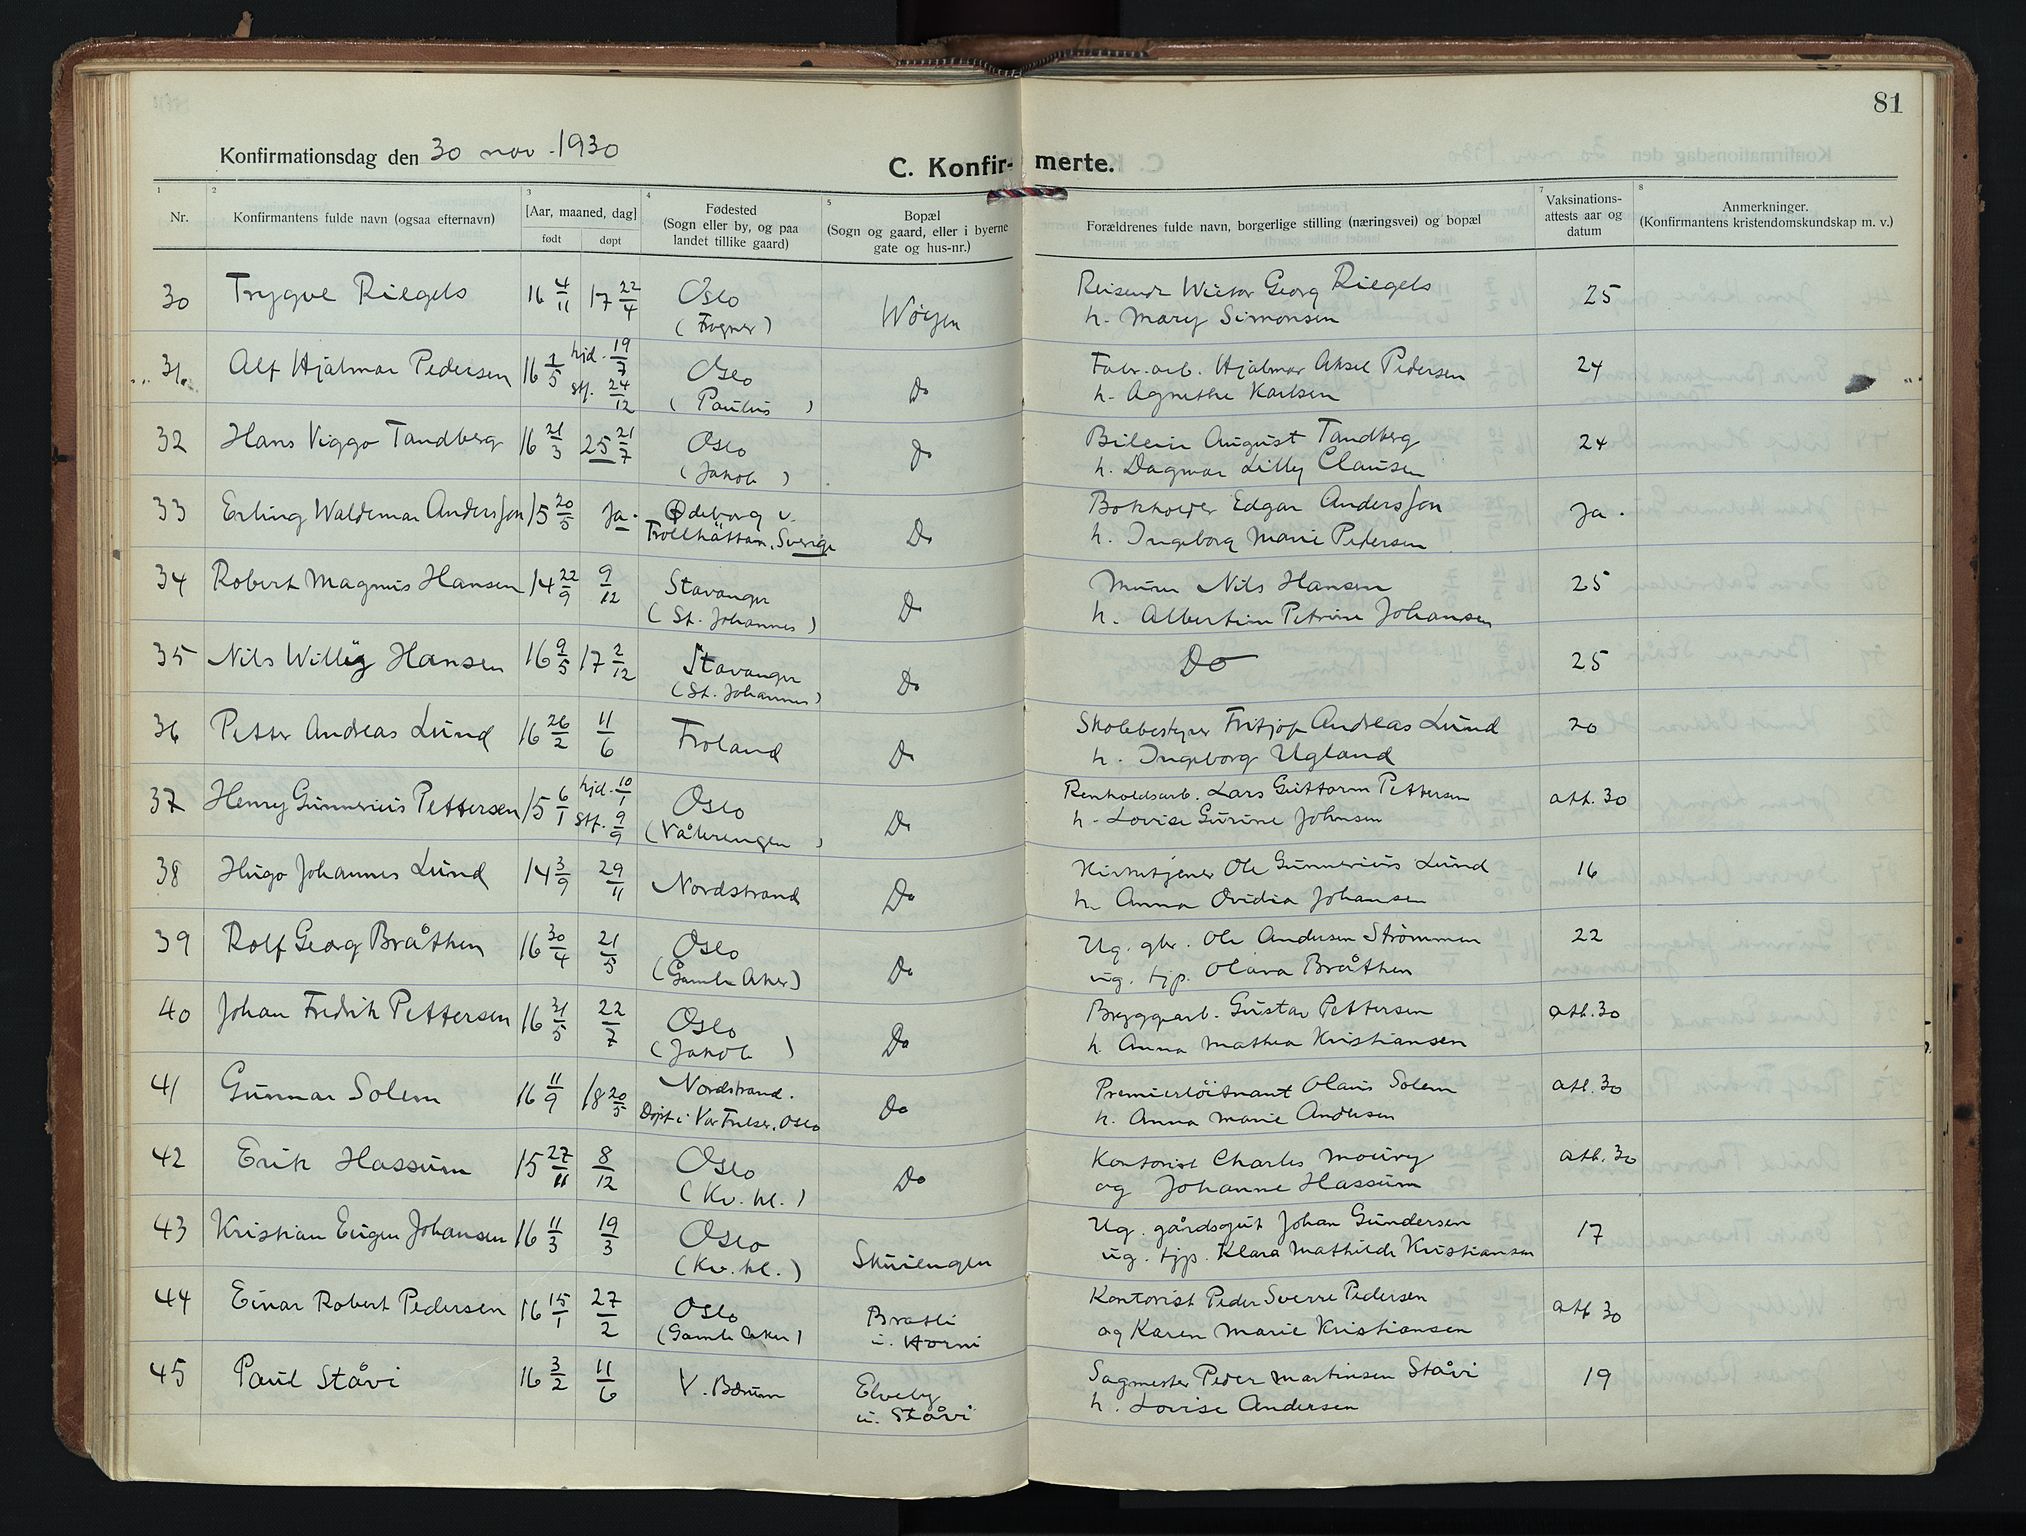 81
Konfirmationsdag den 30 nov. 1930
C. Konfirmerte.
1 2 3 4 5 7 8
Nr.
Konfirmantens fulde navn (ogsaa efternavn)
[Aar, maaned, dag]
født døpt
Fødested
(Sogn eller by, og paa
landet tillike gaard)
Bopæl
(Sogn og gaard, eller i byerne
gate og hus-nr.)
Forældrenes fulde navn, borgerlige stilling (næringsvei) og bopæl
Vaksinations-
attests aar og
datum
Anmerkninger.
(Konfirmantens kristendomskundskap m. v.)
30 Trygve Riegels 16 4/11 17 22/4 Oslo Wøyen Reisende Wictor Georg Riegels 25
(Frogner) h. Mary Simonsen
31. Alf Hjalmar Pedersen 16 1/5 hjd. 19/7 Oslo Do Fabr. arb. Hjalmar Aksel Pedersen 24
stf. 24/12 (Paulus) h. Agnethe Karlsen
32 Hans Viggo Tandberg 16 21/3 25 21/7 Oslo Do August Tandberg 24
(Jakob) h. Dagmar Lilly Clausen
33 Erling Waldemar Andersson 15 20/5 Ja. Ødeborg i Do Bokholder Edgar Andersson Ja.
Trollhättan, Sverige h. Ingeborg Marie Pedersen
34 Robert Magnus Hansen 14 22/9 9/12 Stavanger Do Murer Nils Hansen 25
(St. Johannes) h. Albertine Petrine Johansen
35 Nils Willy Hansen 16 9/5 17 2/12 Stavanger Do Do 25
(St. Johannes)
36 Petter Andreas Lund 16 26/2 11/6 Froland Do Skolebestyrer Fritjof Andreas Lund 20
h. Ingeborg Ugland
37 Henry Gunnerius Pettersen 15 6/1 hjd. 10/1 Oslo Do Renholdsarb. Lars Guttorm Pettersen att. 30
stf. 9/9 (Vålerengen) h. Lovise Gurine Johnsen
38 Hugo Johannes Lund 14 3/9 29/11 Nordstrand Do Kirketjener Ole Gunnerius Lund 16
h. Anna Ovidia Johansen
39 Rolf Georg Bråthen 16 30/4 21/5 Oslo Do Ug. gbr. Ole Andersen Strømmen 22
(Gamle Aker) ug. tjp. Olava Bråthen
40 Johan Fredrik Pettersen 16 31/5 22/7 Oslo Do Bryggearb. Gustav Pettersen att. 30
(Jakob) h. Anna Mathea Kristiansen
41 Gunnar Solem 16 11/9 18 20/5 Nordstrand. Do Premierløitnant Olaus Solem att. 30
Døpt i Vor Frelser, Oslo h. Anna Marie Andersen
42 Erik Hassum 15 27/11 8/12 Oslo Do Kontorist Charles Moury att. 30
(Kv. kl.) og Johanne Hassum
43 Kristian Eugen Johansen 16 11/3 19/3 Oslo Skuiengen Ug. gårdsgut Johan Gundersen 17
(Kv. kl.) ug. tjp. Klara Mathilde Kristiansen
44 Einar Robert Pedersen 16 15/1 27/2 Oslo Bratli Kontorist Peder Sverre Pedersen att 30
(Gamle Aker) u. Horni og Karen Marie Kristiansen
45 Paul Ståvi 16 3/2 11/6 V. Bærum Elveby Sagmester Peder Martinsen Ståvi 19
u. Ståvi h. Lovise Andersen